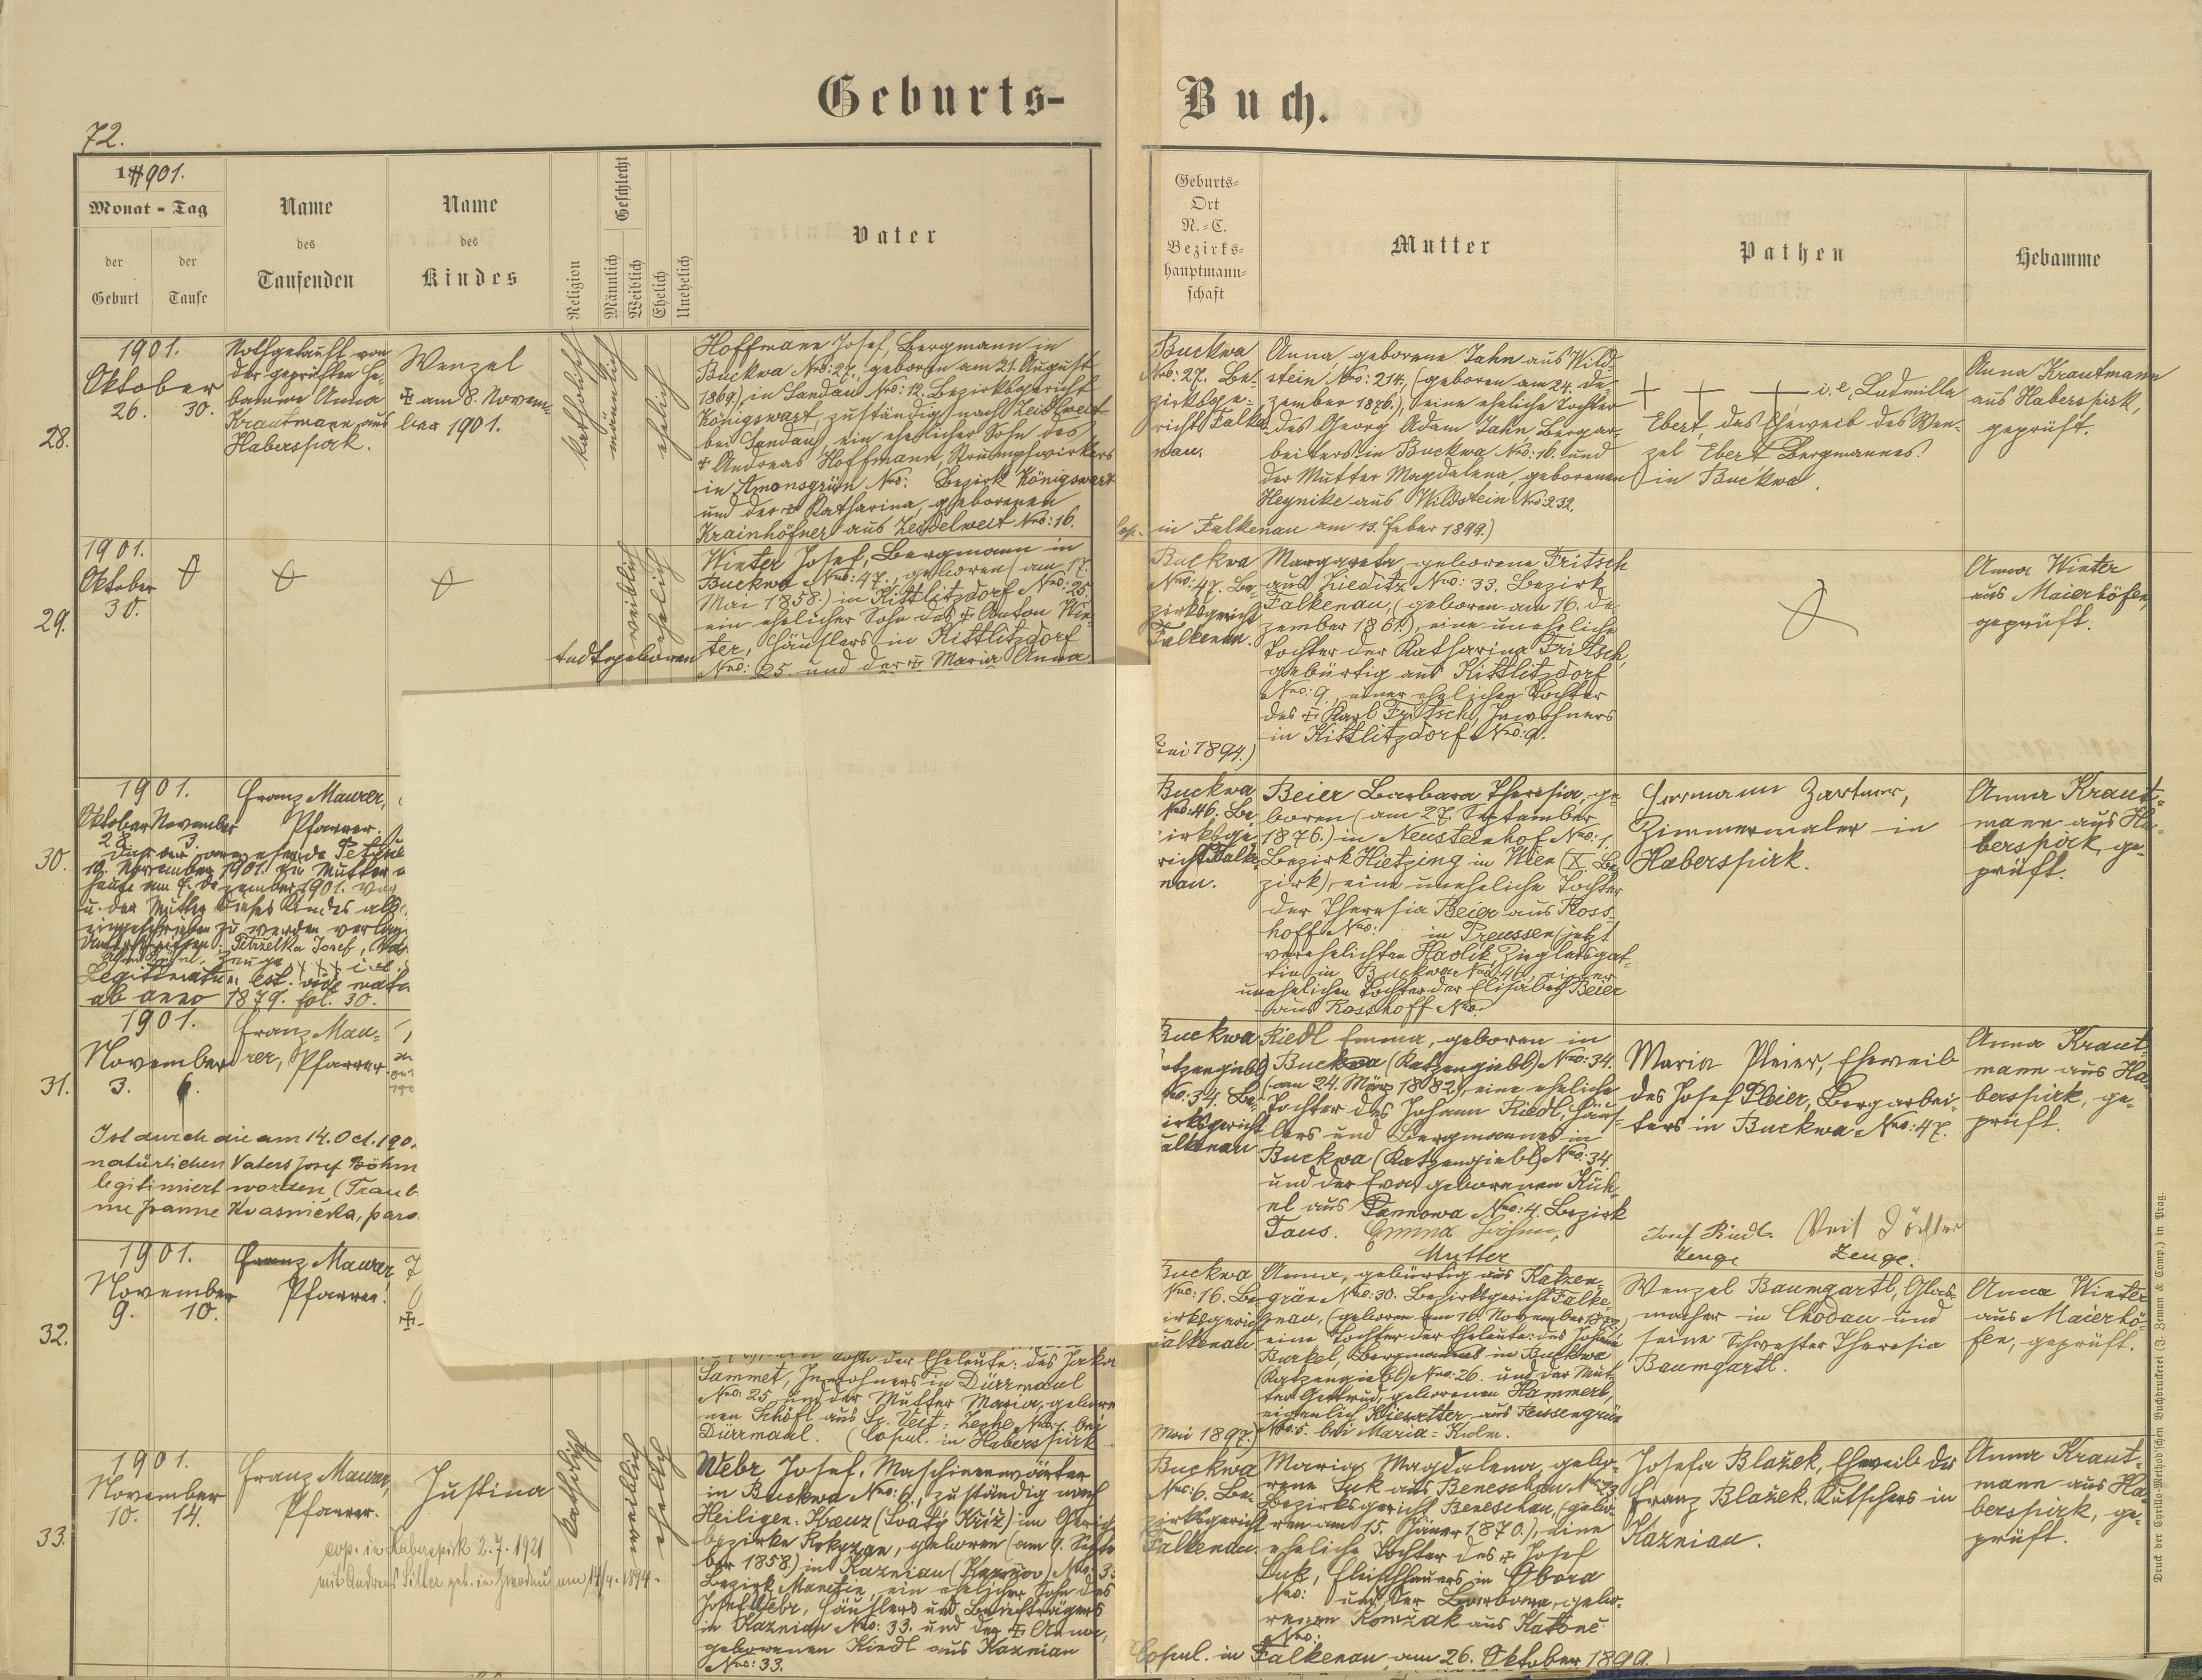 Geburts-
Buch.
72.
1901.
Monat - Tag
der Geburt
der Taufe
Name
des
Taufenden
Name
des
Kindes
Religion
Geschlecht
Männlich
Weiblich
Ehelich
Unehelich
Vater
Geburts-
Ort
N.-C.
Bezirks-
hauptmann-
schaft
Mutter
Pathen
Hebamme
28.
1901.
Oktober
26. 30.
Nothgetauft von
der geprüften He-
bamme Anna
Krautmann aus
Haberspirk.
Wenzel
✠ am 8. Novem-
ber 1901.
katholisch
männlich
ehelich
Hoffmann Josef, Bergmann in
Buckwa Nro: 27, geboren am 21. August
1869) in Sandau Nro: 12. Bezirksgericht
Königswart, zuständig nach Zeidlweit
bei Sandau, ein ehelicher Sohn des
✠ Andreas Hoffmann, Strumpfwirkers
in Amonsgrün Nro: Bezirk Königswart
und der ✠ Katharina, geborenen
Krainhöfner aus Zeidelweit Nro: 16.
Buckwa
Nro: 27. Be-
zirksge-
richt Falke-
nau.
Anna, geborene Jahn aus Wild-
stein Nro: 214, (geboren am 24. De-
zember 1876.), eine eheliche Tochter
des Georg Adam Jahn Bergar-
beiters in Buckwa Nro: 10. und
der Mutter Magdalena, geborenen
Heynike aus Wildstein Nro: 232.
Cop. in Falkenau am 13. Feber 1899.)
+ + + i. e. Ludmilla
Ebert, das Eheweib des Wen-
zel Ebert Bergmannes
in Buckwa.
Anna Krautmann
aus Haberspirk,
geprüft.
29.
1901.
Oktober
30.
weiblich
ehelich
todtgeboren
Winter Josef, Bergmann in
Buckwa Nro: 47., geboren (am 17.
Mai 1858.) in Kittlitzdorf Nro: 25.
ein ehelicher Sohn des ✠ Anton Win-
ter, Häuslers in Kittlitzdorf
Nro: 25. und der ✠ Maria Anna
Buckwa
Nro: 47. Be-
zirksgericht
Falkenau.
Margareta, geborene Fritsch
aus Zieditz Nro: 33. Bezirk
Falkenau, (geboren am 16. De-
zember 1861.), eine uneheliche
Tochter der Katharina Fritsch,
gebürtig aus Kittlitzdorf
Nro: 9, einer ehelichen Tochter
des ✠ Karl Fritsch, Inwohners
in Kittlitzdorf Nro: 9.
1894.)
Anna Winter
aus Maierhöfen,
geprüft.
30.
1901.
Oktober November
28. 3.
Franz Maurer,
Pfarrer.
19. November 1901. die Mutter
heute am 7. Dezember 1901.
u. der Mutter dieses Kindes als
eingeschrieben zu werden verlang
Petrzelka Josef,
Legitimatum est. vide
ab anno 1879. fol. 30.
Buckwa
Nro: 46. Be-
irksge-
richt Falke-
nau.
Beier Barbara Theresia, ge-
boren (am 27. September
1876.) in Neusteinhof Nro: 1.
Bezirk Hietzing in Wien (X. Be-
zirk), eine uneheliche Tochter
der Theresia Beier aus Ross-
hoff Nro: in Preussen (jetzt
verehelichten Havlik, Zieglersgat-
tin in Buckwa Nro: 46, einer
unehelichen Tochter der Elisabeth Beier
aus Rosshoff Nro:
Herrmann Zartner,
Zimmermaler in
Haberspirk.
Anna Kraut-
mann aus Ha-
berspirk, ge-
prüft.
31.
1901.
November
3. 6.
Franz Mau-
rer, Pfarrer.
Ist durch die am 14. Oct. 190
natürlichen Vaters Josef Böhm
legitimiert worden, (Traub
me Joanne Kvasnička, paro
Buckwa
Nro: 34. Be-
irksgericht
alkenau
Riedl Emma, geboren in
Buckwa (Katzengiebl) Nro: 34.
(am 24. März 1882), eine eheliche
Tochter des Johann Riedl, Häus-
lers und Bergmannes in
Buckwa (Katzengiebl) Nro: 34.
und der Eva, geborenen Küh-
el aus Pannowa Nro: 4. Bezirk
Taus. Emma Böhm,
Mutter
Maria Pleier, Eheweib
des Josef Pleier, Bergarbei-
ters in Buckwa Nro: 47.
Josef Riedl Veit
Zeuge Zeuge.
Anna Kraut-
mann aus Ha-
berspirk, ge-
prüft.
32.
1901.
November
9. 10.
Franz Maurer,
Pfarrer.
Sohn der Eheleute: des Jakob
Sammet, Inwohners in Dürrmaul
Nro: 25 und der Mutter Maria, gebore-
nen Schöffl aus St. Veit-Zeche Nro: 1 bei
Dürrmaul. (Copul. in Haberspirk
Buckwa
Nro: 16. Be-
irksgericht
Falkenau.
Mai 1897.)
Anna, gebürtig aus Katzen-
grün Nro: 30. Bezirksgericht Falke-
nau, (geboren am 16. November
eine Tochter der Eheleute: des Johann
Burkel, Bergmannes in Buckwa
(Katzengiebl) Nro: 26. und der Mut-
ter Gertrud, geborenen Hammerl,
eigentlich Kliesatter aus Reissengrün
Nro: 5. bei Maria-Kulm.
Wenzel Baumgartl, Glas-
macher in Chodau und
seine Schwester Theresia
Baumgartl.
Anna Winter
aus Maierhö-
fen, geprüft.
33.
1901.
November
10. 14.
Franz Maurer,
Pfarrer.
Justina
cop. in Haberspirk 2.7.1921
mit Andreas Siller geb. in Zwodau am 17/4. 1894.
katholisch
weiblich
ehelich
Webr Josef, Maschinenwärter
in Buckwa Nro: 6., zuständig nach
Heiligen-Kreuz (Svatý Kříž) im Gerich
bezirke Rokyzan, geboren (am 9. Septe
ber 1858) in Kaznian (Kaznov) Nro: 33
Bezirk Manetin, ein ehelicher Sohn des
Josef Webr, Häuslers und Briefträgers
in Kaznian Nro: 33. und der ✠ Anna,
geborenen Kiedl aus Kaznian
Nro: 33.
Buckwa
Nro: 6. Be-
zirksgericht
Falkenau.
Maria Magdalena, gebo-
rene Suk aus Beneschau Nro: 23
Bezirksgericht Beneschau, (gebo-
ren am 15. Jäner 1870.), eine
eheliche Tochter des ✠ Josef
Suk, Fleischhauers in Obora
Nro: und der Barbara, gebo-
renen Komžak aus Katone
Nro:
Copul. in Falkenau am 26. Oktober 1899.)
Josefa Blažek, Eheweib des
Franz Blažek, Kutschers in
Kaznian.
Anna Kraut-
mann aus Ha-
berspirk, ge-
prüft.
Druck der Cyrillo-Method'schen Buchdruckerei (J. Zeman & Comp.) in Prag.